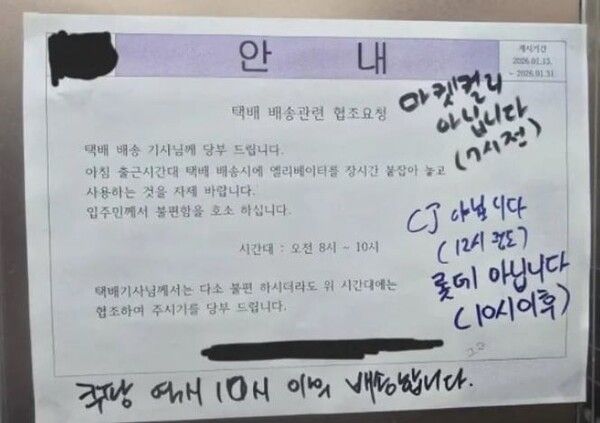 안 내
게시기간
2026.01.13.
~ 2026.01.31.
택배 배송관련 협조요청
택배 배송 기사님께 당부 드립니다.
아침 출근시간대 택배 배송시에 엘리베이터를 장시간 붙잡아 놓고
사용하는 것을 자제 바랍니다.
입주민께서 불편함을 호소 하십니다.
시간대 : 오전 8시 ~ 10시
택배기사님께서는 다소 불편 하시더라도 위 시간대에는
협조하여 주시기를 당부 드립니다.
마켓컬리
아닙니다
(7시전)
CJ 아닙니다
(12시 정도)
롯데 아닙니다
(10시이후)
쿠팡 역시 10시 이후 배송합니다.